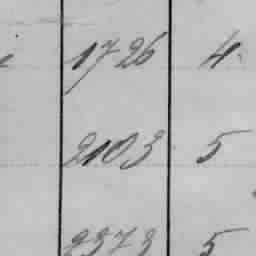 1726 4
2103 5
2373 5